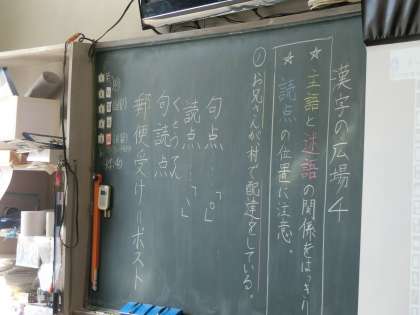 漢字の広場4
☆主語と述語の関係をはっきり
☆読点の位置に注意。
①お兄さんが村で配達をしている。
句点…「。」
読点…「、」
くとうてん
句読点
郵便受け＝ポスト